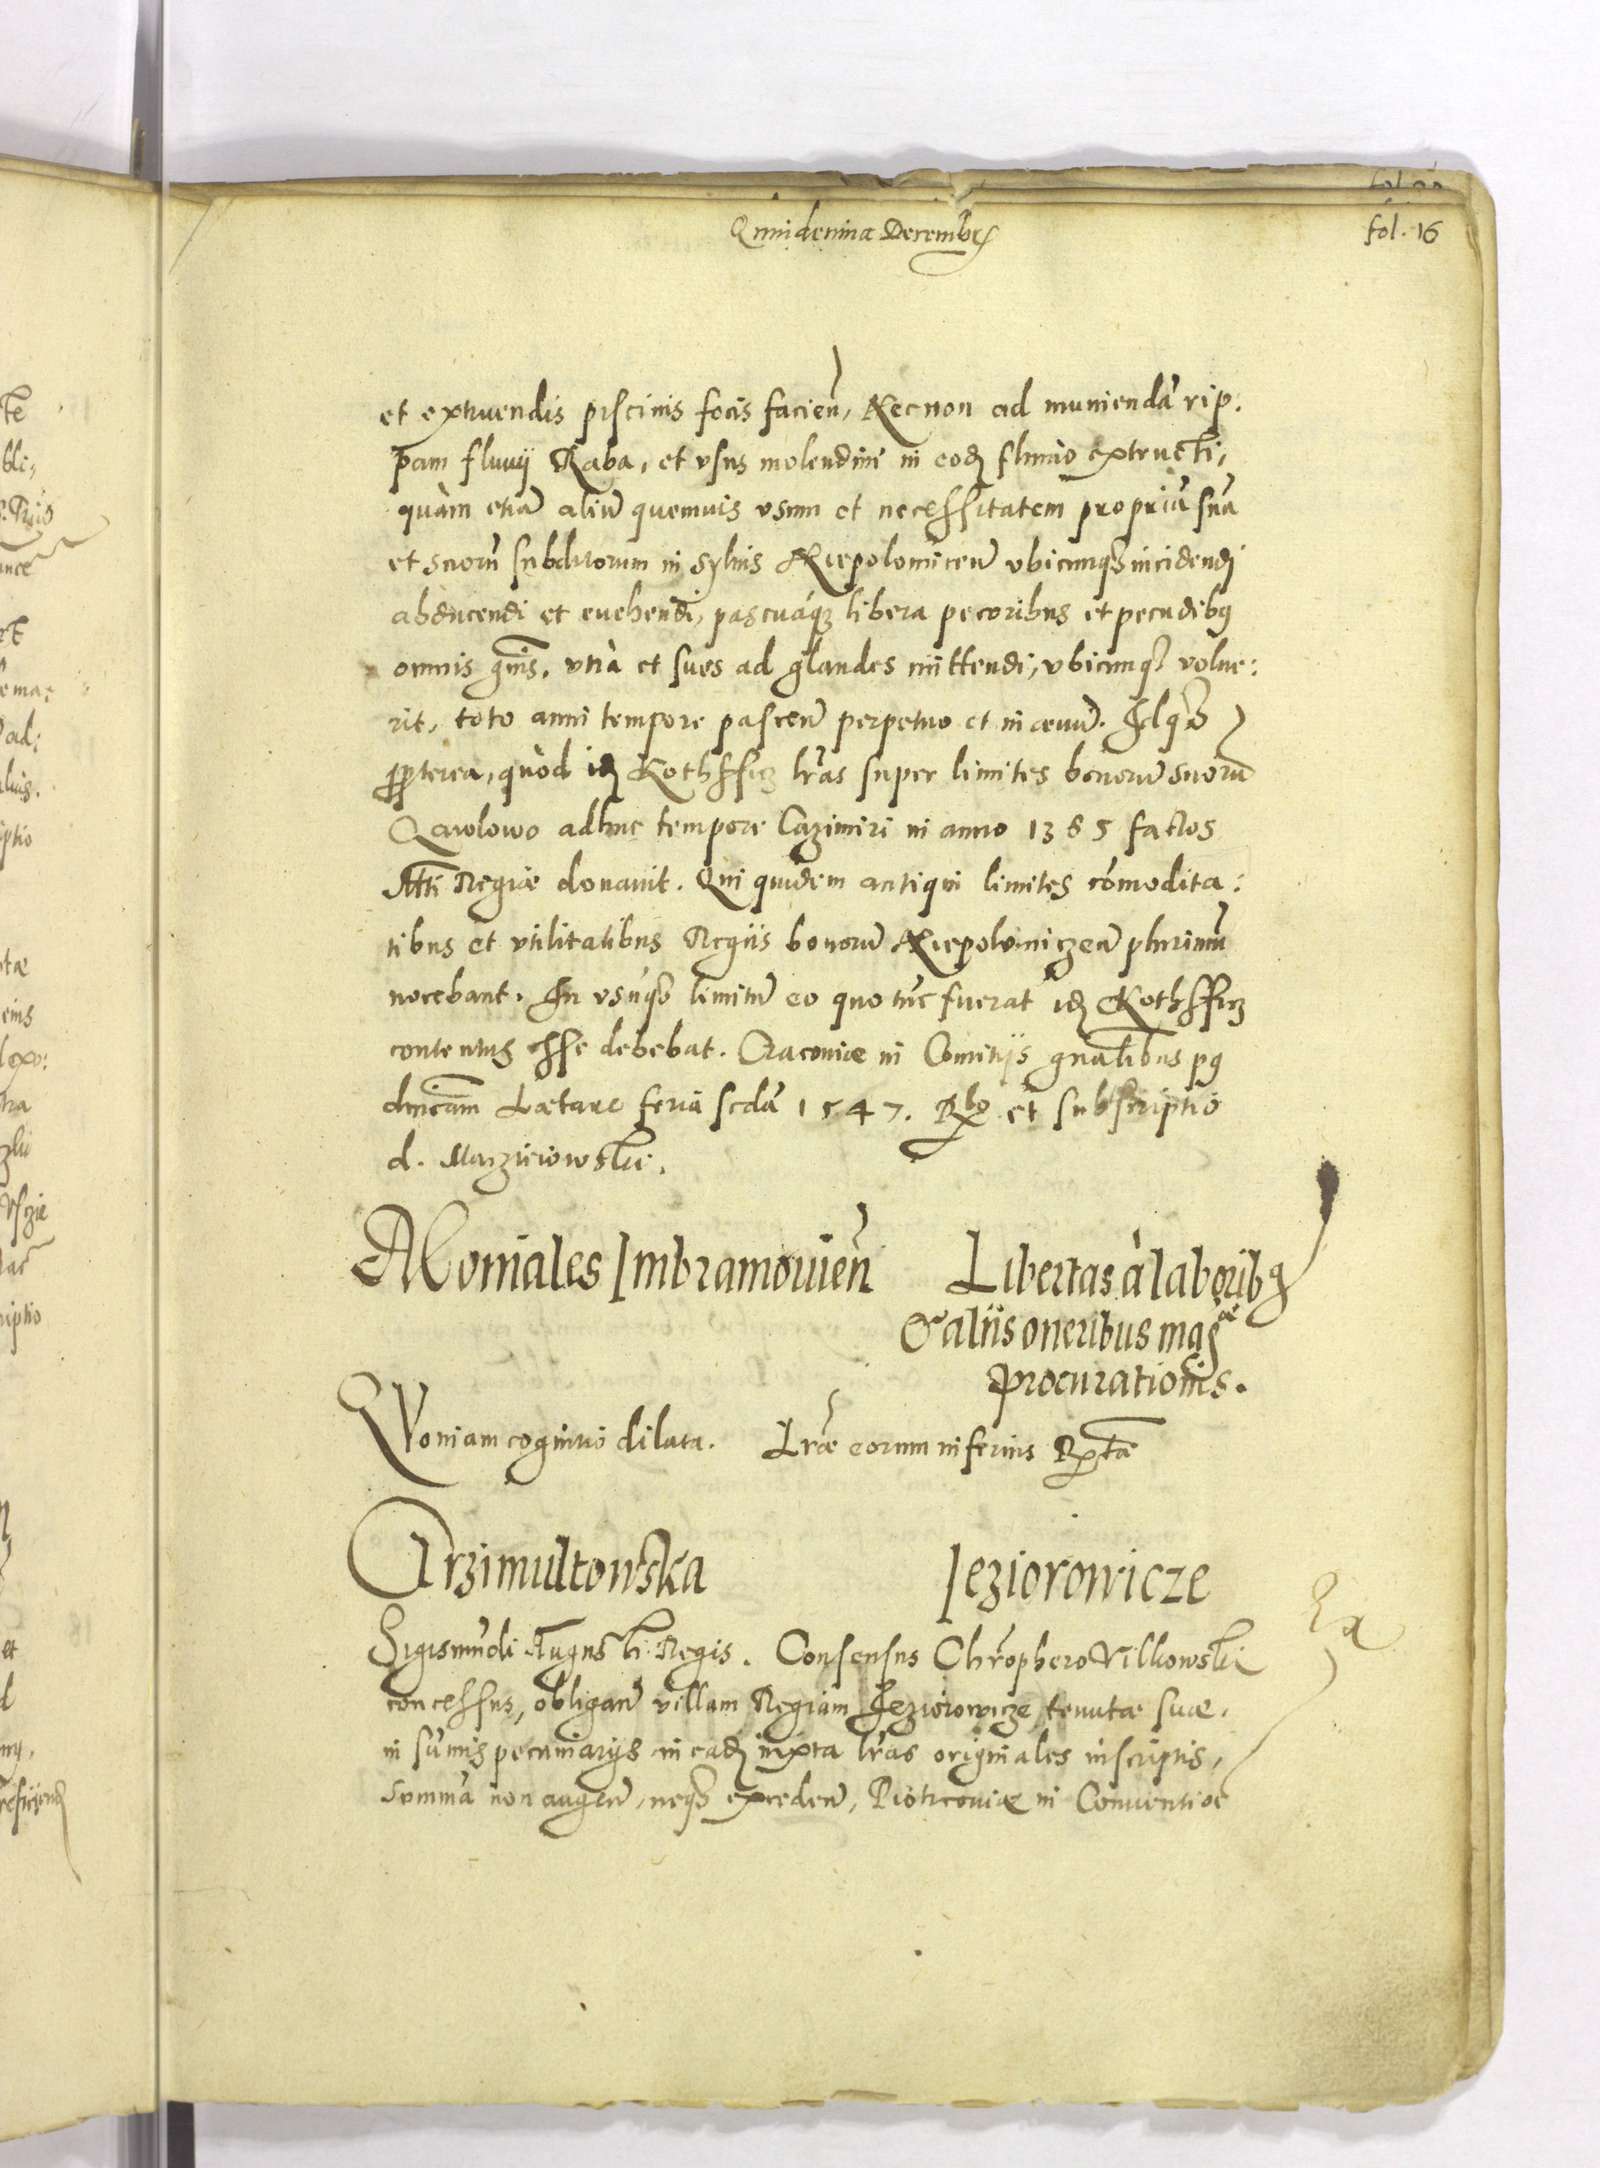 Quindenina Decembr
fol. 16
et extruendis piscinis focis facien̄, Necnon ad muniendā rip.
pam fluvij Raba, et vsus molendini in eod fluuio extructi,
quàm etiā aliū quemuis vsum et necessitatem propriā suā
et suorū subditorum in sylvis Niepolomicen̄ vbicunqȝ incidendi
abducendi et euehendi, pascuaqȝ libera pecoribus et pecudibꝯ
omnis gn̄is, vnà et sues ad glandes mittendi, vbicunqȝ volue:
rit, toto anni tempore pascen̄ perpetuo et in ævum. Idqȝ
ꝓpterea, quòd idȝ Kothssicz lr̄as super limites bonorū suorū
Qwolowo adhuc tempore Cazimiri in anno 1365 factos
Mtti Regiæ donauit. Qui quidem antiqui limites cōmodita:
tibus et vtilitatibus Regiis bonorū Niepolomiczen̄ plurimū
nocebant. In vsuqȝ limitū eo quo tūc fuerat idȝ Kothssicz
contentus esse debebat. Cracoviæ in Comitijs gn̄alibus pꝯ
dn̄icam Lætare feria scdā 1547. Rlo et subscriptio
d. Maczieiowskie.
Moniales Imbramouien̄ Libertas à laboribꝯ
& aliis oneribus magæ
procurationis.
QVoniam cognitio dilata. Lr̄æ eorum inferius Rptæ
Crzimultowska Ieziorowicze
Sigismūdi Augusti Regis. Consensus Chr̄ophero Vilkowski
concessus, obligan̄ villam Regiam Ieziorowicze tenutæ suæ.
in sūmis pecuniarijs in eadȝ iuxta lr̄as originales inscriptis,
Summā non augen̄, neqȝ exceden̄, Piotrcoviæ in Conuentioē